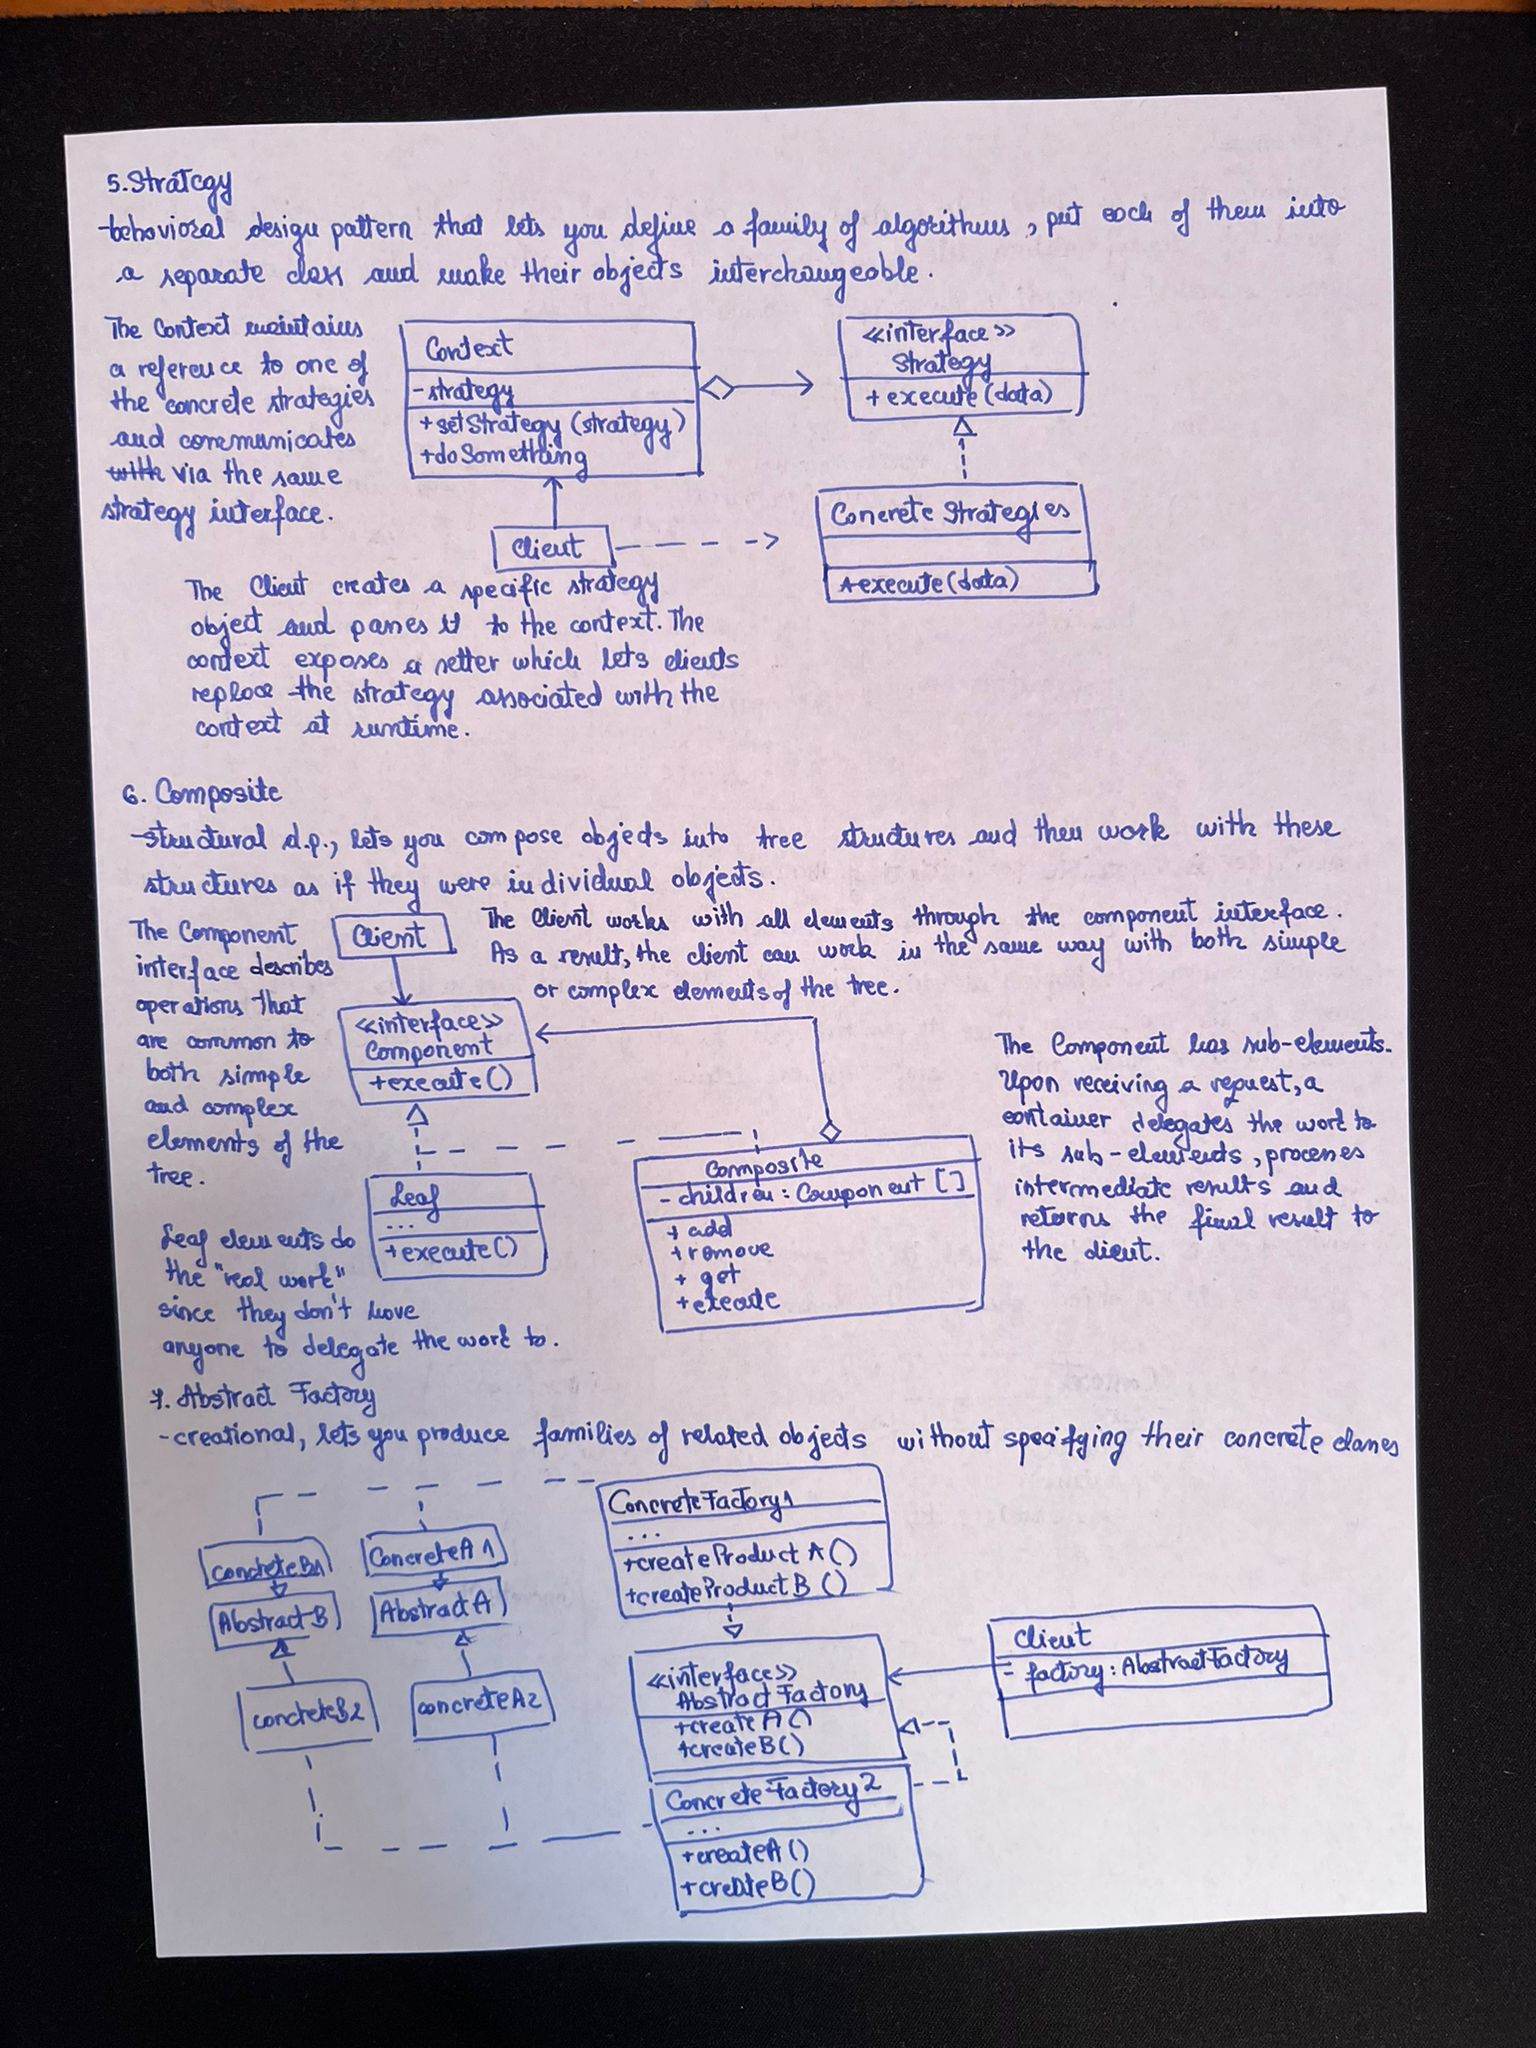 5. Strategy
- behavioral design pattern that lets you define a family of algorithms, put each of them into
a separate class and make their objects interchangeable.
The Context maintains
a reference to one of
the concrete strategies
and communicates
with via the same
strategy interface.
Context
- strategy
+ setStrategy (strategy)
+ doSomething
<<interface>>
Strategy
+ execute(data)
Client
Concrete Strategies
+execute(data)
The Client creates a specific strategy
object and passes it to the context. The
context exposes a setter which lets clients
replace the strategy associated with the
context at runtime.
6. Composite
- structural d.p., lets you compose objects into tree structures and then work with these
structures as if they were individual objects.
The Component
interface describes
operations that
are common to
both simple
and complex
elements of the
tree.
Client
The Client works with all elements through the component interface.
As a result, the client can work in the same way with both simple
or complex elements of the tree.
<<interface>>
Component
+execute()
The Component has sub-elements.
Upon receiving a request, a
container delegates the work to
its sub-elements, processes
intermediate results and
returns the final result to
the client.
Leaf
...
+execute()
Composite
- children: Component []
+ add
+ remove
+ get
+ execute
Leaf elements do
the "real work"
since they don't have
anyone to delegate the work to.
7. Abstract Factory
- creational, lets you produce families of related objects without specifying their concrete classes
ConcreteFactory1
...
+createProduct A()
+createProduct B()
concreteB1
ConcreteA1
AbstractB
AbstractA
concreteB2
concreteA2
<<interface>>
AbstractFactory
+createA()
+createB()
Client
- factory: AbstractFactory
ConcreteFactory2
...
+createA()
+createB()